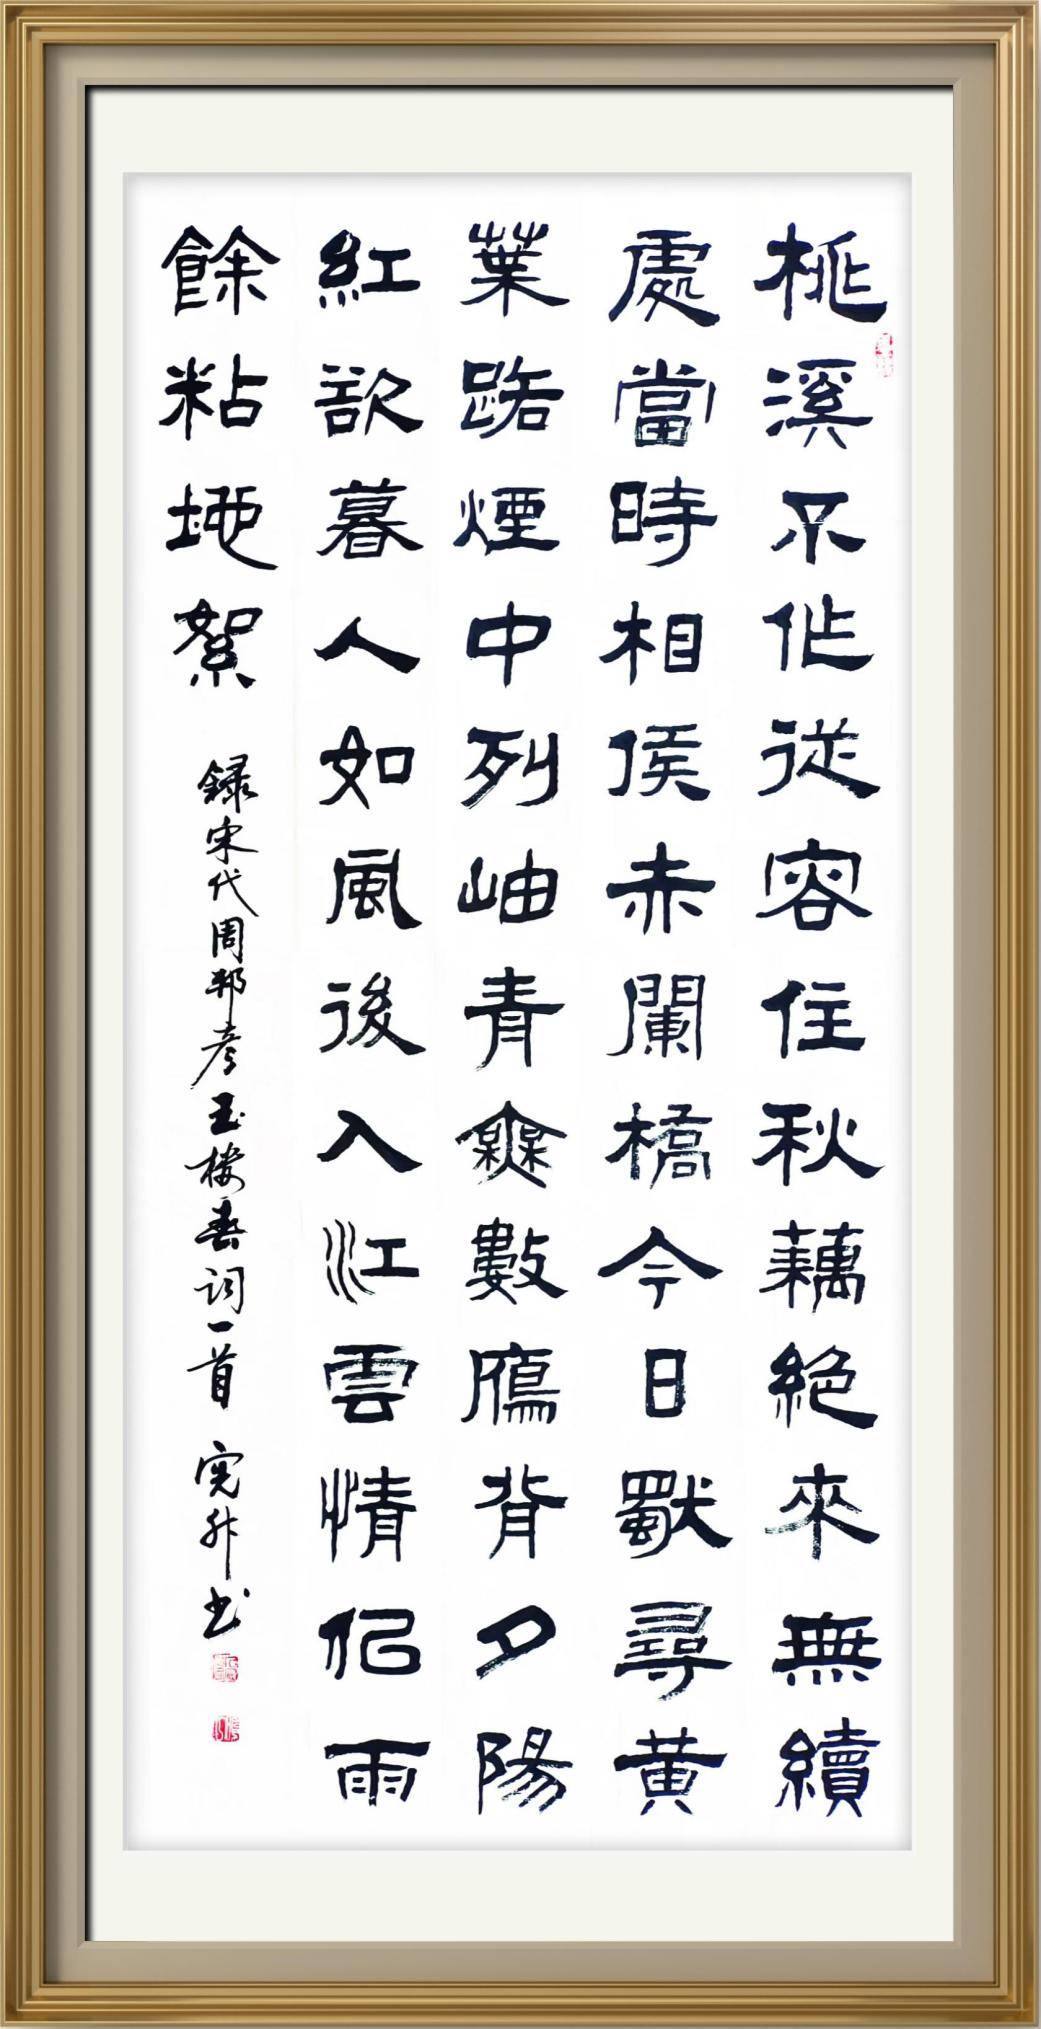 桃溪不作從容住秋藕絕來無續
處當時相侯赤闌橋今日獨尋黄
葉路煙中列岫青無數鴈背夕陽
紅欲暮人如風後入江雲情似雨
餘粘地絮
録宋代周邦彦玉楼春词一首 升书